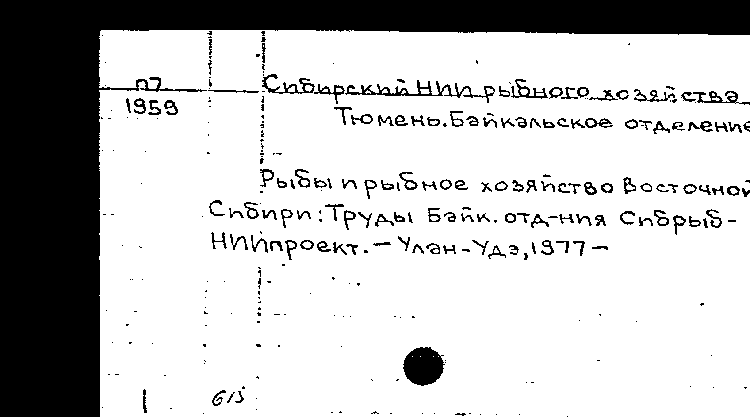 п7
1959
Сибирский НИИ рыбного хозяйства
Тюмень. Байкальское отделение
Рыбы и рыбное хозяйство Восточной
Сибири: Труды Байк. отд-ния Сибрыб-
НИИпроект. - Улан-Удэ, 1977 -